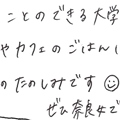 ことのできる大学
やカフェのごはん
のたのしみです☺
ぜひ奈良女で